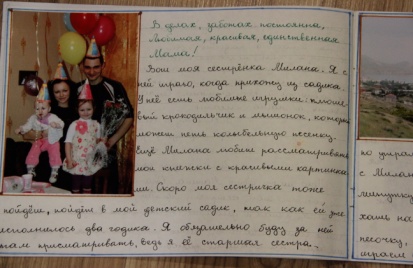 В делах, заботах постоянна,
Любимая, красивая, единственная
Мама!
Вот моя сестрёнка Милана. Я с
ней играю, когда прихожу из садика.
У неё есть любимые игрушки: плюше-
вый крокодильчик и мышонок, который
может петь колыбельную песенку.
Ещё Милана любит рассматривать
мои книжки с красивыми картинка-
ми. Скоро моя сестричка тоже
пойдёт, пойдёт в мой детский садик, так как ей уже
исполнилось два годика. Я обязательно буду за ней
там присматривать, ведь я её старшая сестра.
по утрам
с Милан
минутку
хоть на
песочку,
играем